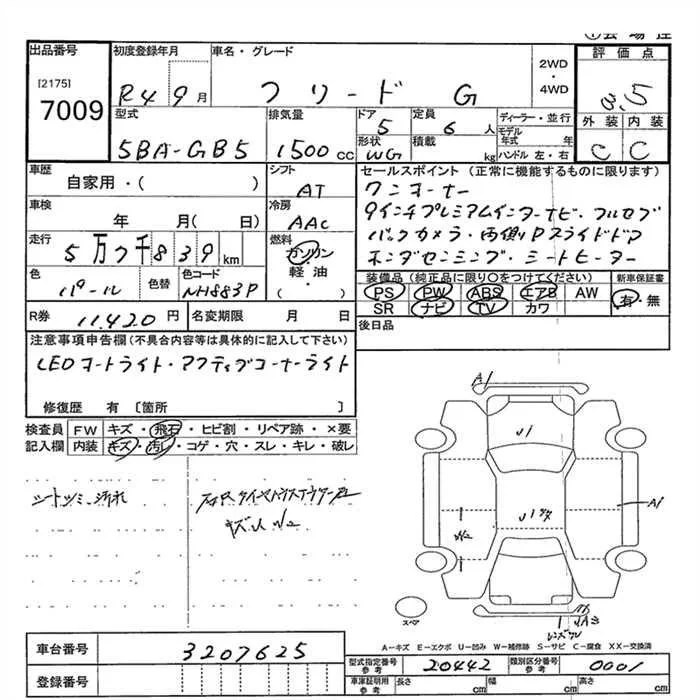 出品番号 初度登録年月 車名・グレード 評価点
[2175]
7009
R4 9月 フリード G 2WD・4WD 3.5
型式 排気量 ドア 定員 ディーラー・並行 外装 内装
5BA-GB5 1500cc 5 6人 モデル年式 年 C C
形状 積載
WG kg ハンドル 左・右
車歴 シフト セールスポイント(正常に機能するものに限ります)
自家用・( ) AT ワンオーナー
車検 冷房 9インチプレミアムインターナビ・フルセグ
年 月( 日) AAC バックカメラ・両側Pスライドドア
走行 燃料 ホンダセンシング・シートヒーター
5万7千839km ガソリン
軽油
( )
色 色替 色コード 装備品(純正品に限り○をつけてください) 新車保証書
パール NH883P PS PW ABS エアB AW 有・無
SR ナビ TV カワ
R券 11,420円 名変期限 月 日 後日品
注意事項申告欄(不具合内容等は具体的に記入して下さい)
LEDヘッドライト・アクティブコーナーライト
修復歴 有 [箇所 ]
検査員 FW キズ・飛石・ヒビ割・リペア跡・×要
記入欄 内装 キズ・汚レ・コゲ・穴・スレ・キレ・破レ
シートシミ汚れ
A1
U1
A1
W2
スペア
A-キズ E-エクボ U-凹み W-補修跡 S-サビ C-腐食 XX-交換済
車台番号 3207625
型式指定番号 参考 20442 類別区分番号 参考 0001
登録番号 車庫証明用 参考 長さ cm 幅 cm 高さ cm